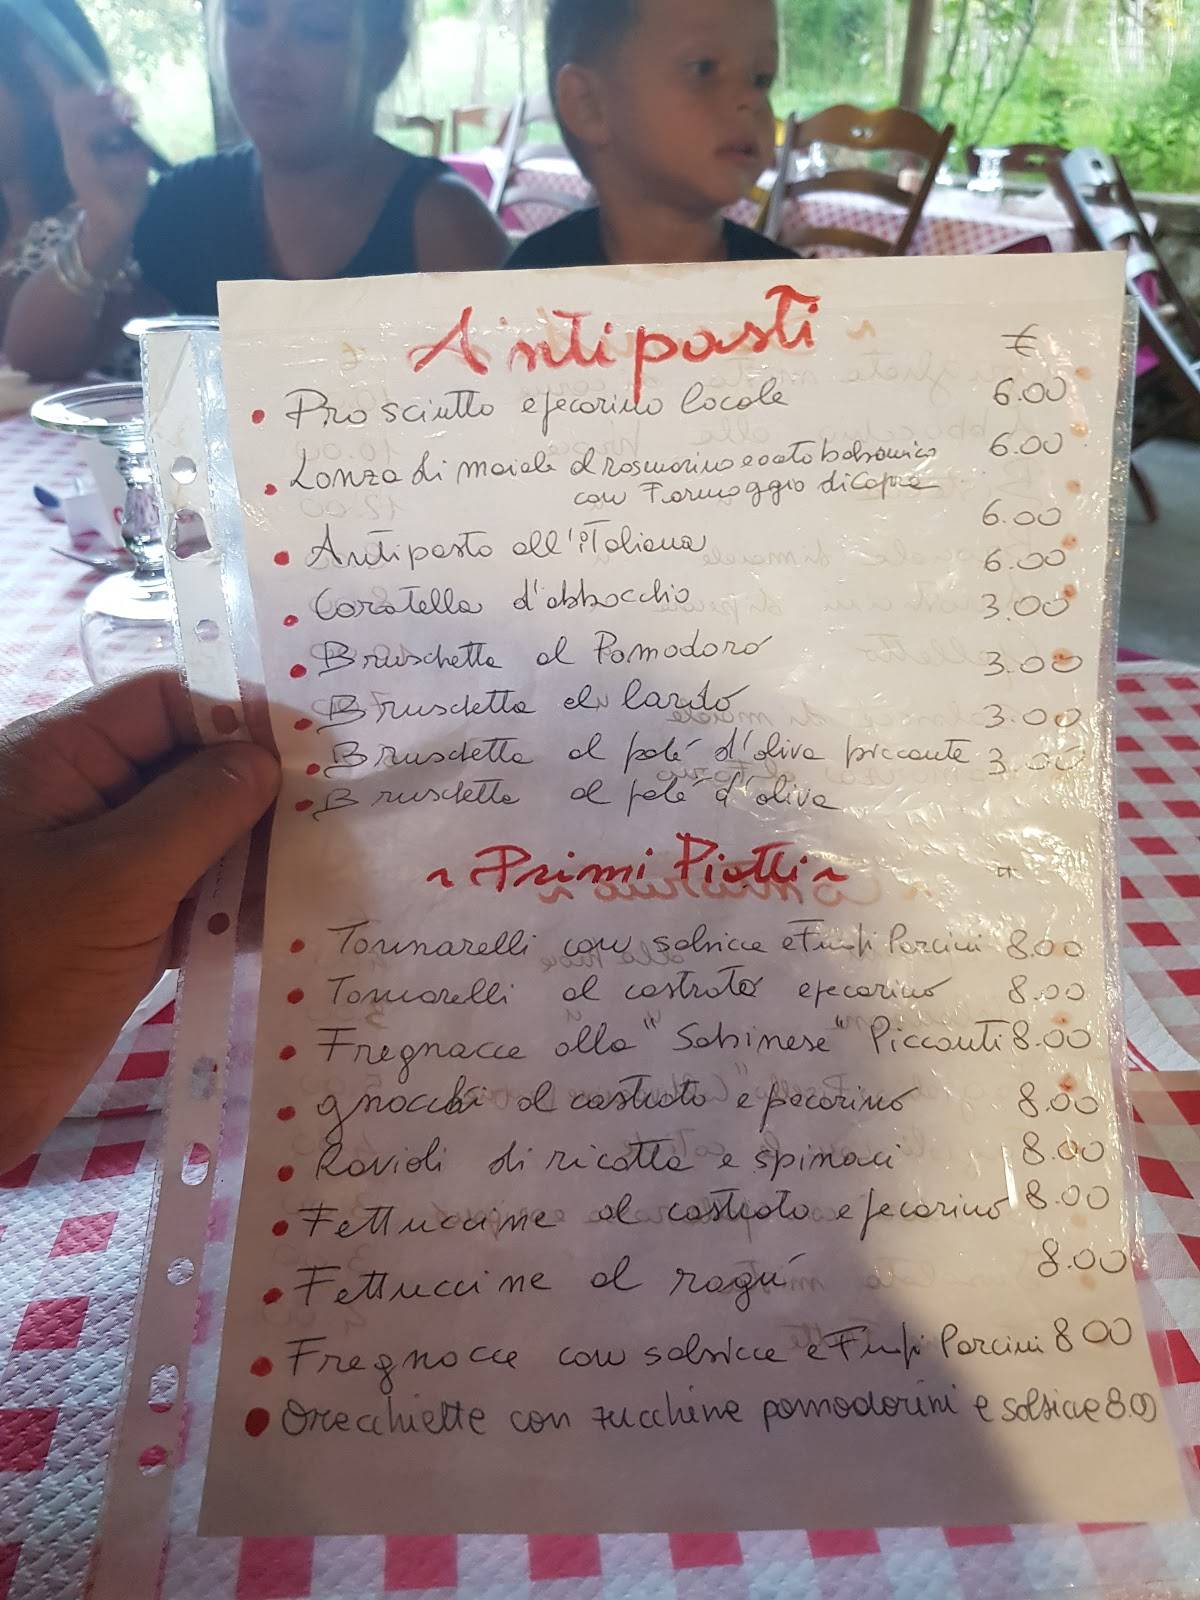 Antipasti ~
€
• Prosciutto e pecorino locale 6.00
• Lonza di maiale al rosmarino e aceto balsamico 6.00
con Formaggio di Capra
• Antipasto all'iTaliana 6.00
• Coratella d'abbacchio 6.00
• Bruschetta al Pomodoro 3.00
• Bruschetta al lardo 3.00
• Bruschetta al paté d'oliva piccante 3.00
• Bruschetta al paté d'oliva 3.00
~ Primi Piatti ~
• Tonnarelli con salsicce e Funghi Porcini 8.00
• Tonnarelli al castrato e pecorino 8.00
• Fregnacce alla "Sabinese" Piccanti 8.00
• gnocchi al castrato e pecorino 8.00
• Ravioli di ricotta e spinaci 8.00
• Fettuccine al castrato e pecorino 8.00
• Fettuccine al ragú 8.00
• Fregnacce con salsicce e Funghi Porcini 8.00
• Orecchiette con zucchine pomodorini e salsicce 8.00